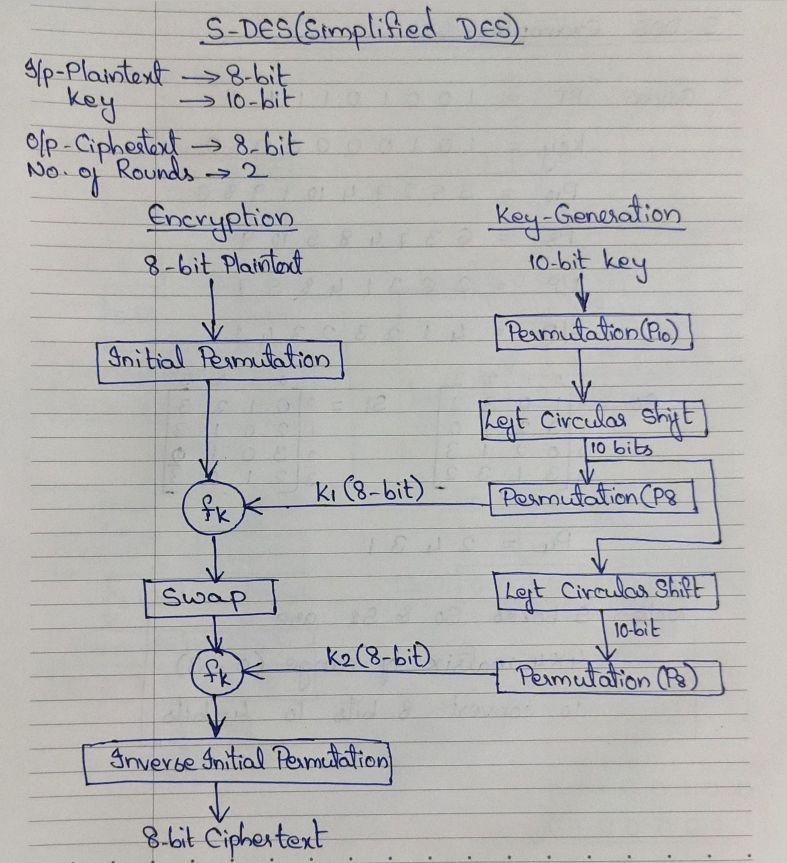 S-DES(Simplified DES)
I/p-Plaintext → 8-bit
Key → 10-bit
O/p-Ciphertext → 8-bit
No. of Rounds → 2
Encryption
8-bit Plaintext
Initial Permutation
fk
Swap
fk
Inverse Initial Permutation
8-bit Ciphertext
Key-Generation
10-bit key
Permutation(P10)
Left Circular Shift
10 bits
K1 (8-bit)
Permutation(P8
Left Circular Shift
10-bit
K2 (8-bit)
Permutation (P8)